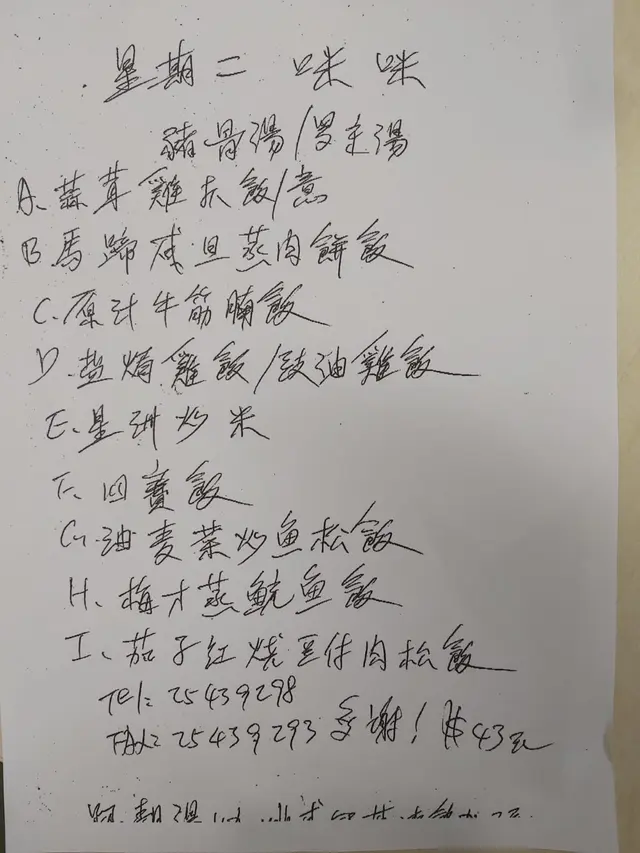 星期二 咪咪
豬骨湯/罗宋湯
A、蒜茸雞扒飯/意
B.馬蹄咸旦蒸肉餅飯
C.原汁牛筋腩飯
D.盐焗雞飯/豉油雞飯
E、星洲炒米
F、四寶飯
G.油麦菜炒鱼松飯
H、梅才蒸鯇鱼飯
I、茄子红燒豆付肉松飯
Tel: 25439298
FAX: 25439293 多谢! $43元